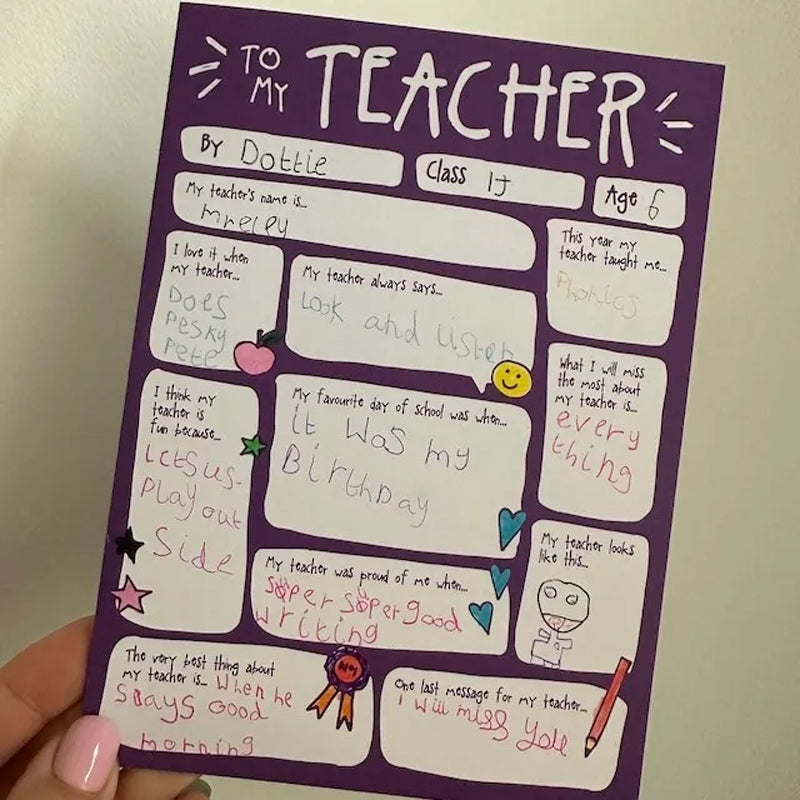 TO
MY
TEACHER
BY Dottie
Class 1J
Age 6
My teacher's name is...
mreley
This year my
teacher taught me...
Phonics
I love it when
my teacher...
Does
Pesky
Pete
My teacher always says...
Look and Listen
What I will miss
the most about
my teacher is...
every
thing
I think my
teacher is
fun because...
Lets us
Play out
Side
My favourite day of school was when...
it was my
BirthDay
My teacher looks
like this...
My teacher was proud of me when...
super super good
writing
The very best thing about
my teacher is... when he
says Good
morning
One last message for my teacher...
i will miss you